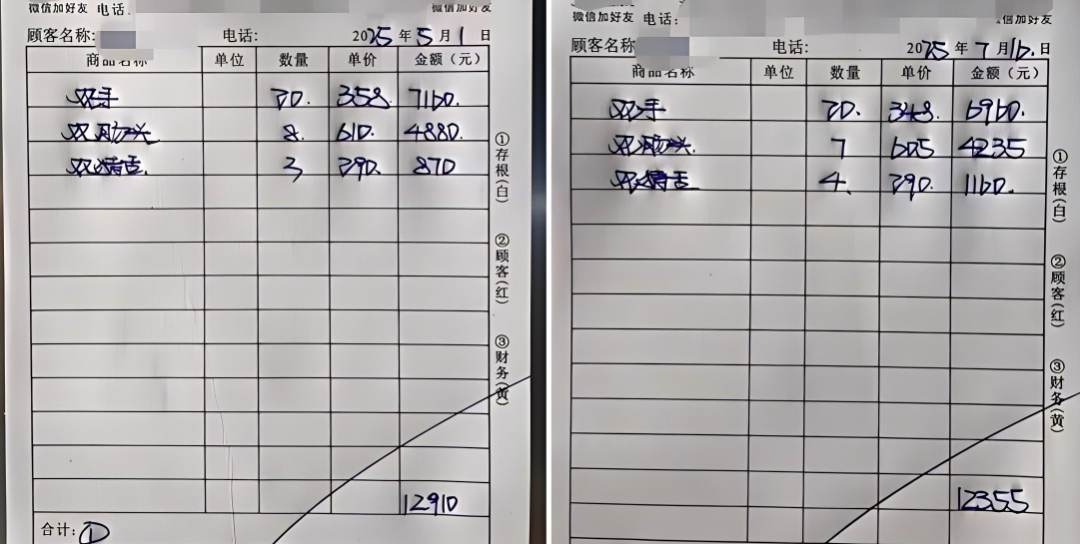 微信加好友 电话: 微信加好友
顾客名称: 电话: 2025年5月1日
商品名称 单位 数量 单价 金额（元）
双手 20. 358 7160.
8. 610. 4880.
3 290. 870
12910
合计: ①
①存根(白)
②顾客(红)
③财务(黄)
微信加好友 电话: 微信加好友
顾客名称 电话: 2025年7月16.日
商品名称 单位 数量 单价 金额（元）
双手 20. 348. 6960.
7 605 4235
4. 290. 1160.
12355
①存根(白)
②顾客(红)
③财务(黄)